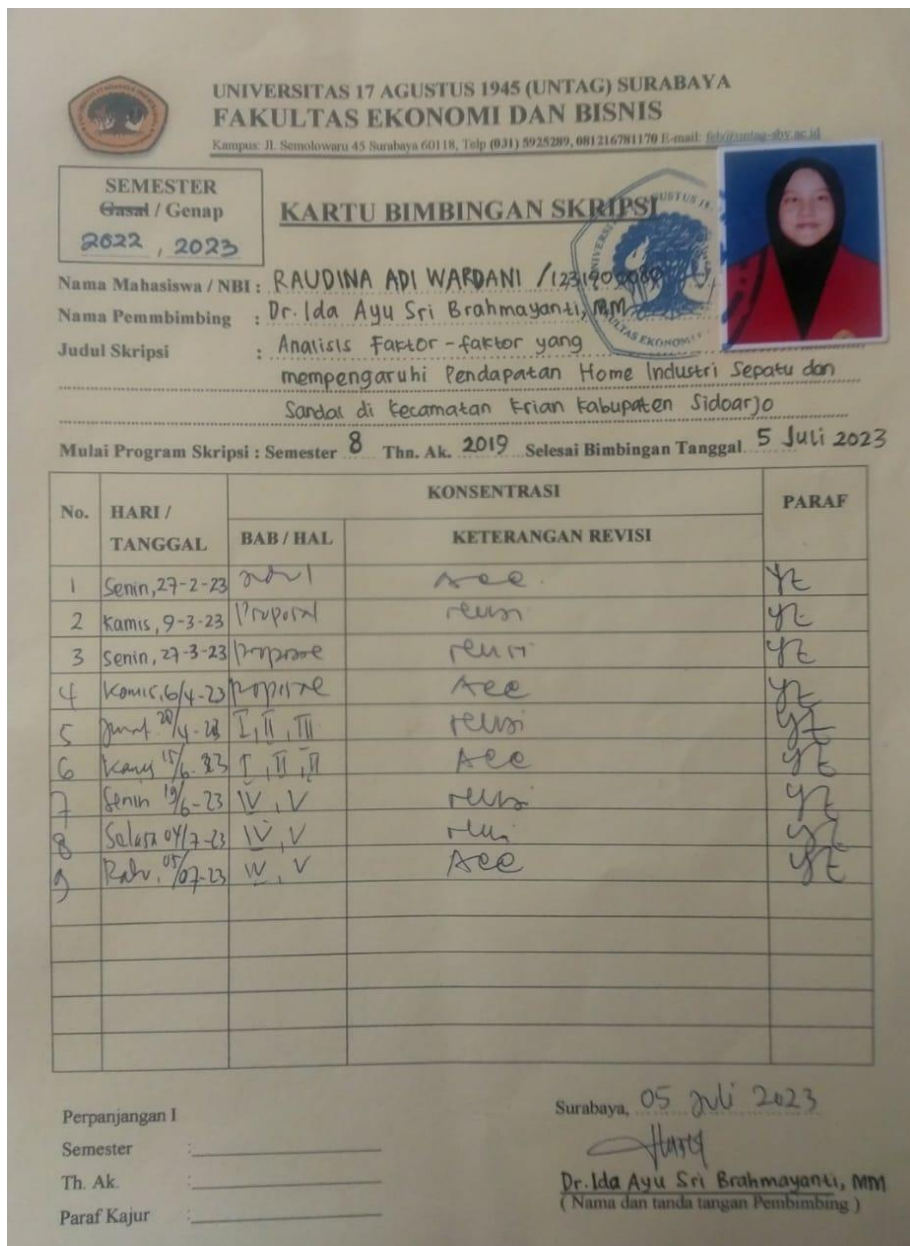 UNIVERSITAS 17 AGUSTUS 1945 (UNTAG) SURABAYA
FAKULTAS EKONOMI DAN BISNIS
Kampus: Jl. Semolowaru 45 Surabaya 60118, Telp (031) 5925289, 081216781170 E-mail: feb@untag-sby.ac.id
SEMESTER
Gasal / Genap
2022 , 2023
KARTU BIMBINGAN SKRIPSI
Nama Mahasiswa / NBI : RAUDINA ADI WARDANI /1231900089
Nama Pemmbimbing : Dr. Ida Ayu Sri Brahmayanti, MM
Judul Skripsi : Analisis Faktor - faktor yang
mempengaruhi Pendapatan Home Industri Sepatu dan
Sandal di Kecamatan Krian Kabupaten Sidoarjo
Mulai Program Skripsi : Semester 8 Thn. Ak. 2019 Selesai Bimbingan Tanggal 5 Juli 2023
No. HARI / TANGGAL KONSENTRASI PARAF
BAB / HAL KETERANGAN REVISI
1 Senin, 27-2-23 Acc
2 Kamis, 9-3-23 Proposal revisi
3 Senin, 27-3-23 proposal revisi
4 Kamis, 6/4-23 proposal Acc
5 20/4-23 I, II, III revisi
6 Kamis 15/6-23 I, II, III Acc
7 Senin 19/6-23 IV, V revisi
8 Selasa 04/7-23 IV, V revisi
9 Rabu, 05/07-23 IV, V Acc
Perpanjangan I
Semester :
Th. Ak. :
Paraf Kajur :
Surabaya, 05 Juli 2023
Dr. Ida Ayu Sri Brahmayanti, MM
( Nama dan tanda tangan Pembimbing )